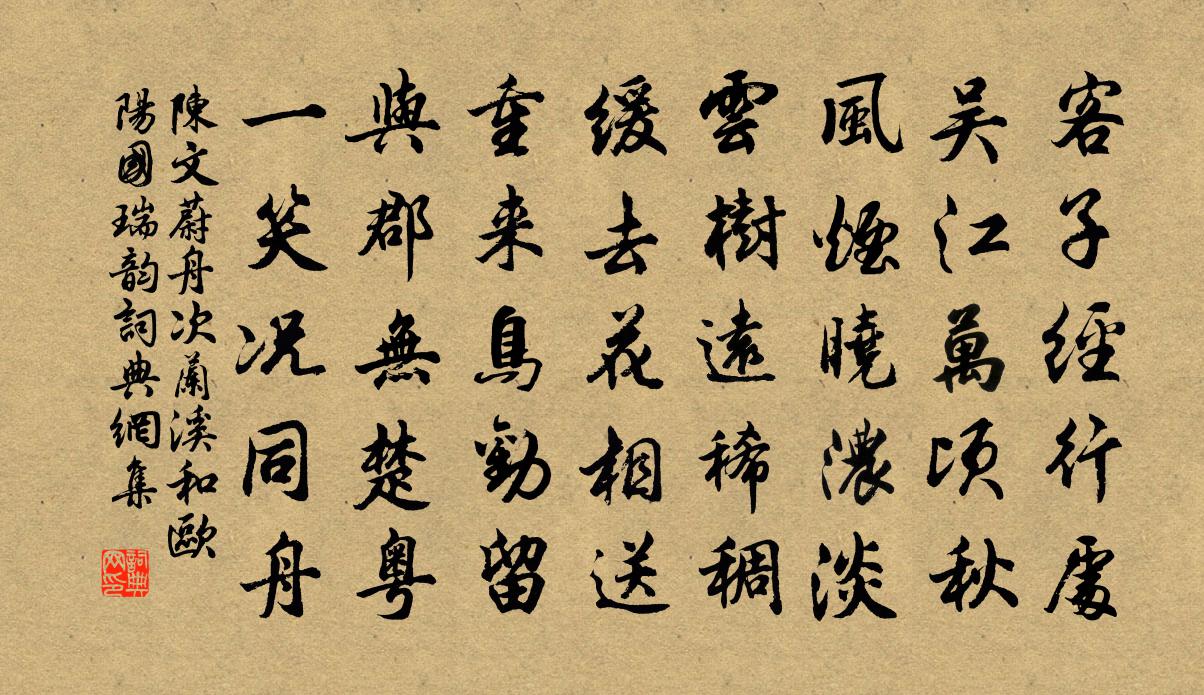 客子經行處
吴江萬頃秋
風煙曉濃淡
雲樹遠稀稠
緩去花相送
重来鳥勸留
與郡無楚粤
一笑况同舟
陳文蔚舟次蘭溪和歐
陽國瑞韵詞典網集
詞典
网印